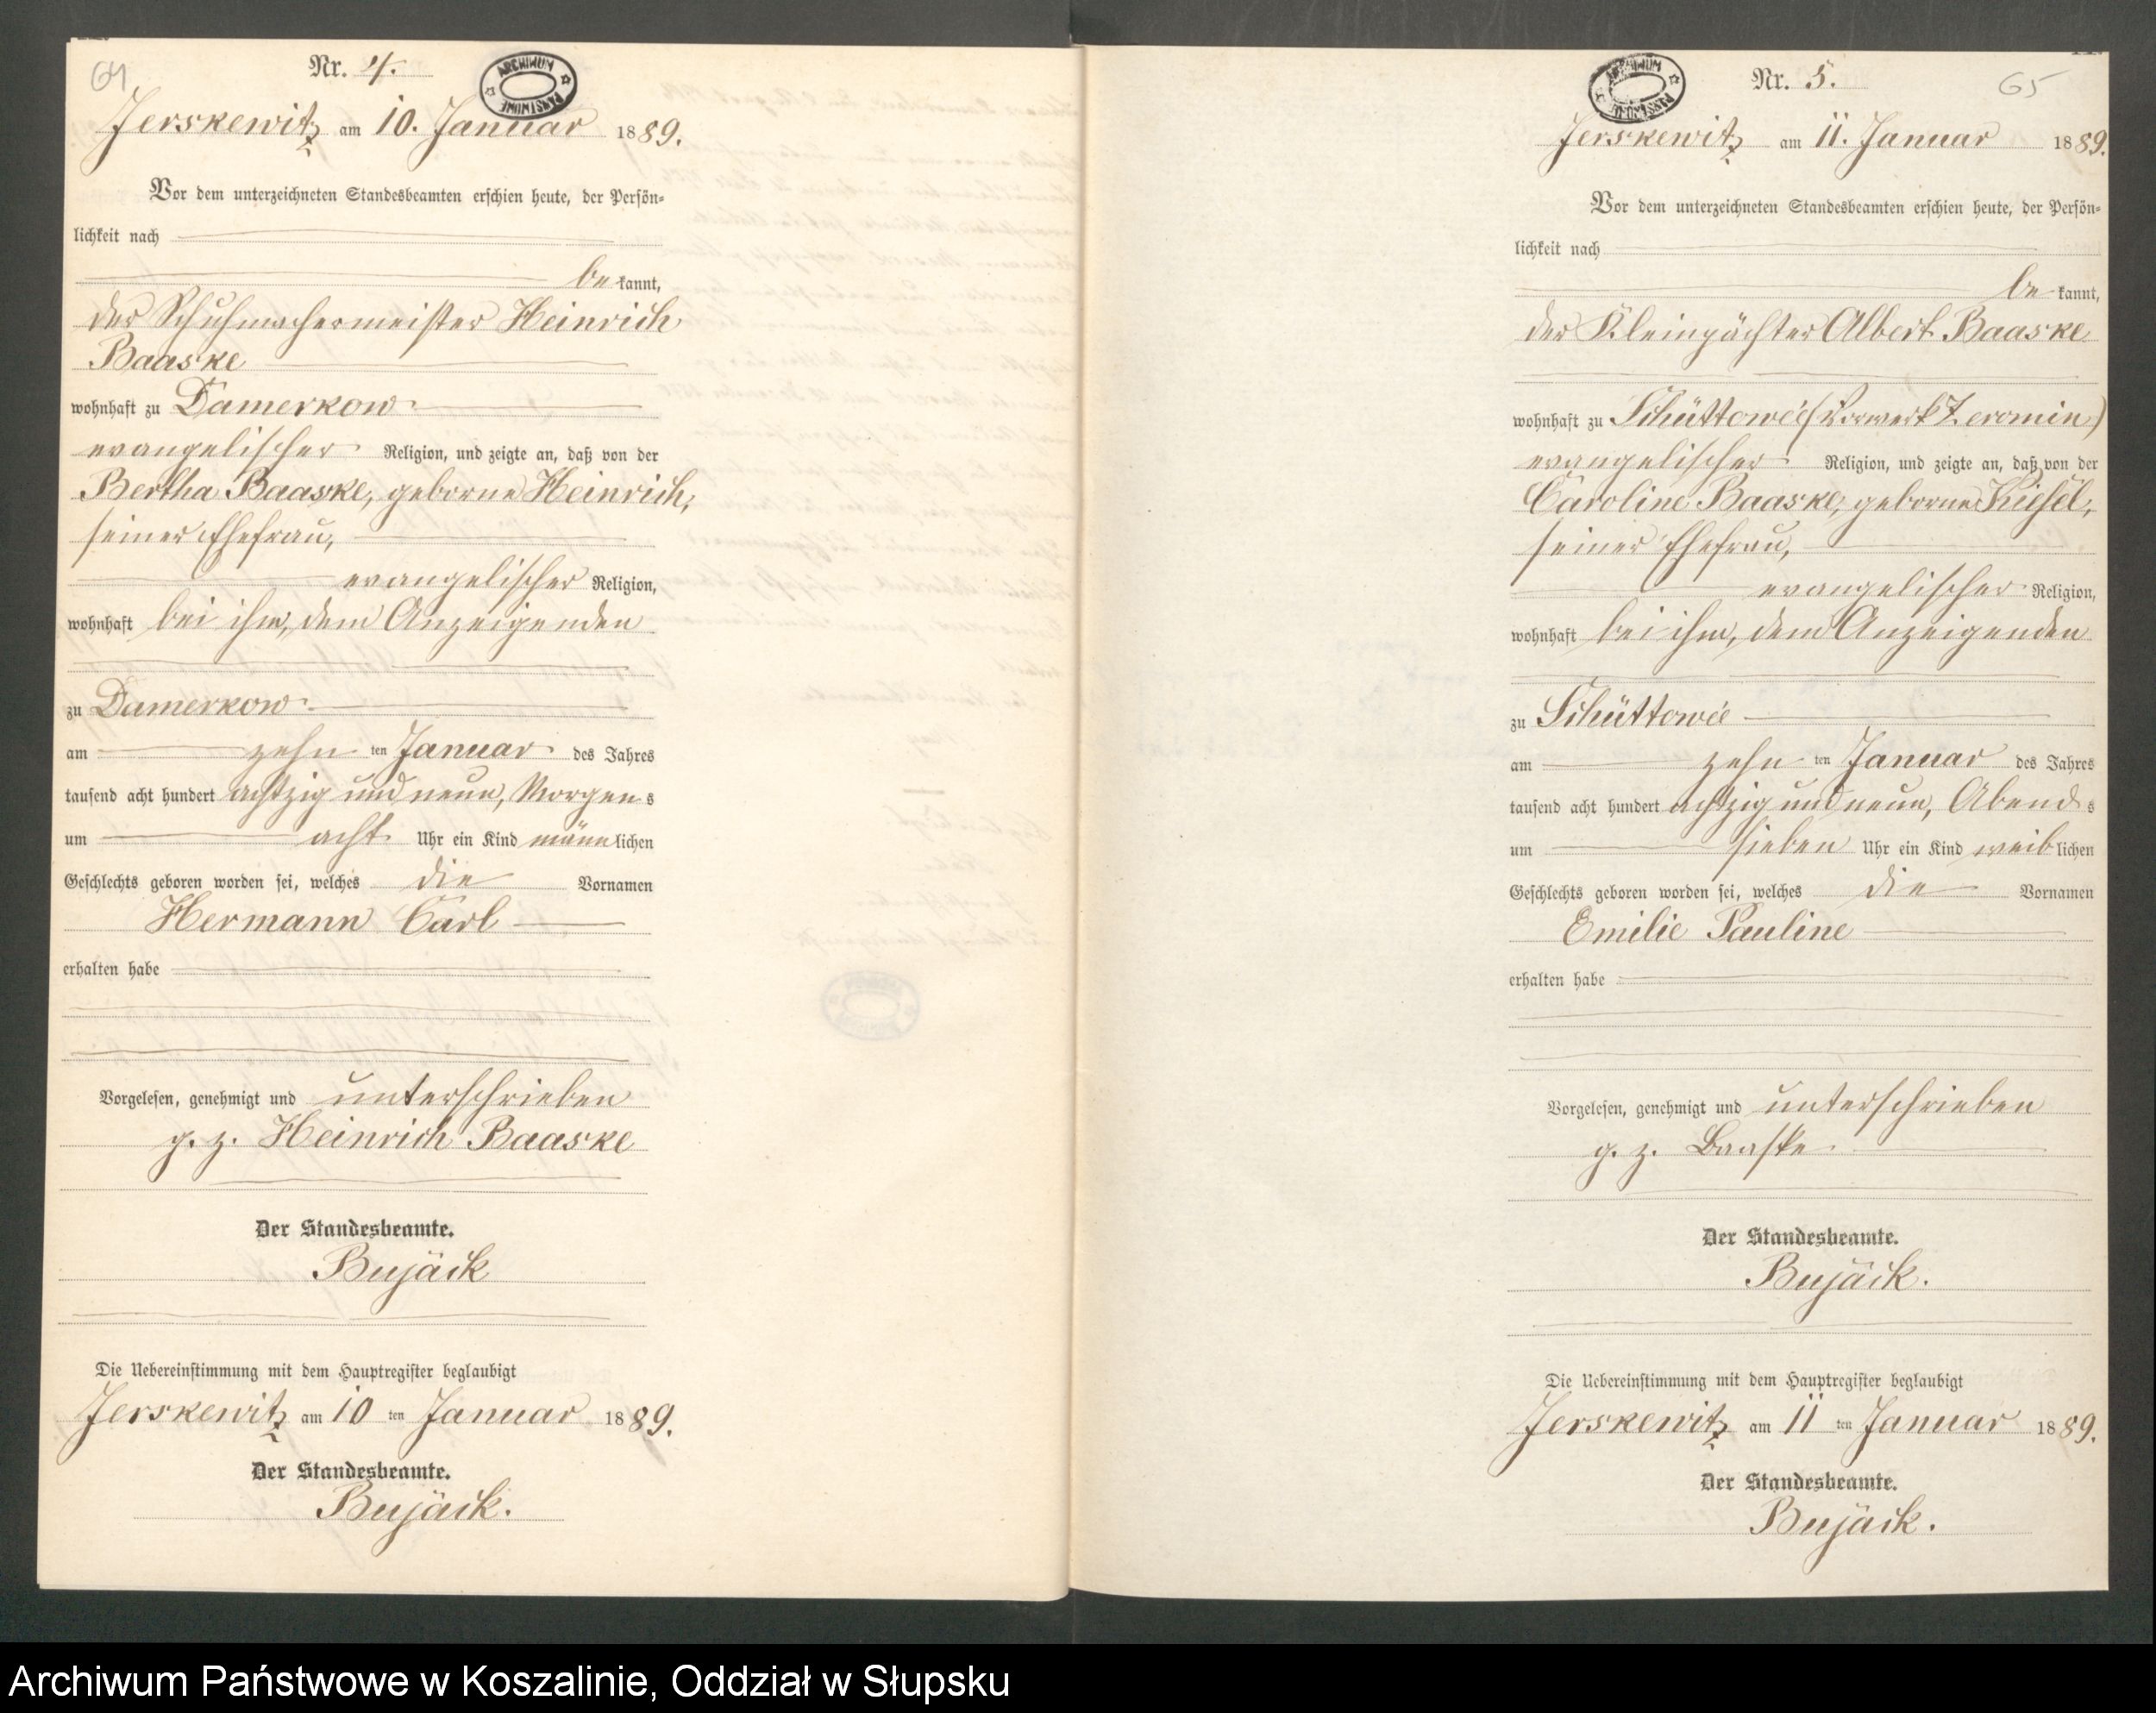 64
Nr. 4.
ARCHIWUM PAŃSTWOWE
Jerskewitz am 10. Januar 1889.
Vor dem unterzeichneten Standesbeamten erschien heute, der Persön-
lichkeit nach
be kannt,
der Schuhmachermeister Heinrich
Baaske
wohnhaft zu Damerkow
evangelischer Religion, und zeigte an, daß von der
Bertha Baaske, geborne Heinrich,
seiner Ehefrau,
evangelischer Religion,
wohnhaft bei ihm, dem Anzeigenden
zu Damerkow
am zehn ten Januar des Jahres
tausend acht hundert achtzig und neun, Morgens
um acht Uhr ein Kind männlichen
Geschlechts geboren worden sei, welches die Vornamen
Hermann Carl
erhalten habe
Vorgelesen, genehmigt und unterschrieben
g. z. Heinrich Baaske
Der Standesbeamte.
Bujäck
Die Uebereinstimmung mit dem Hauptregister beglaubigt
Jerskewitz am 10 ten Januar 1889.
Der Standesbeamte.
Bujäck.
ARCHIWUM PAŃSTWOWE
Nr. 5.
65
Jerskewitz am 11. Januar 1889.
Vor dem unterzeichneten Standesbeamten erschien heute, der Persön-
lichkeit nach
be kannt,
der Kleinpächter Albert Baaske
wohnhaft zu Schüttowée (Vorwerk Zeromin)
evangelischer Religion, und zeigte an, daß von der
Caroline Baaske, geborne Kiesel,
seiner Ehefrau,
evangelischer Religion,
wohnhaft bei ihm, dem Anzeigenden
zu Schüttowée
am zehn ten Januar des Jahres
tausend acht hundert achtzig und neun, Abends
um sieben Uhr ein Kind weiblichen
Geschlechts geboren worden sei, welches die Vornamen
Emilie Pauline
erhalten habe
Vorgelesen, genehmigt und unterschrieben
g. z. Baaske
Der Standesbeamte.
Bujäck.
Die Uebereinstimmung mit dem Hauptregister beglaubigt
Jerskewitz am 11 ten Januar 1889.
Der Standesbeamte.
Bujäck.
Archiwum Państwowe w Koszalinie, Oddział w Słupsku